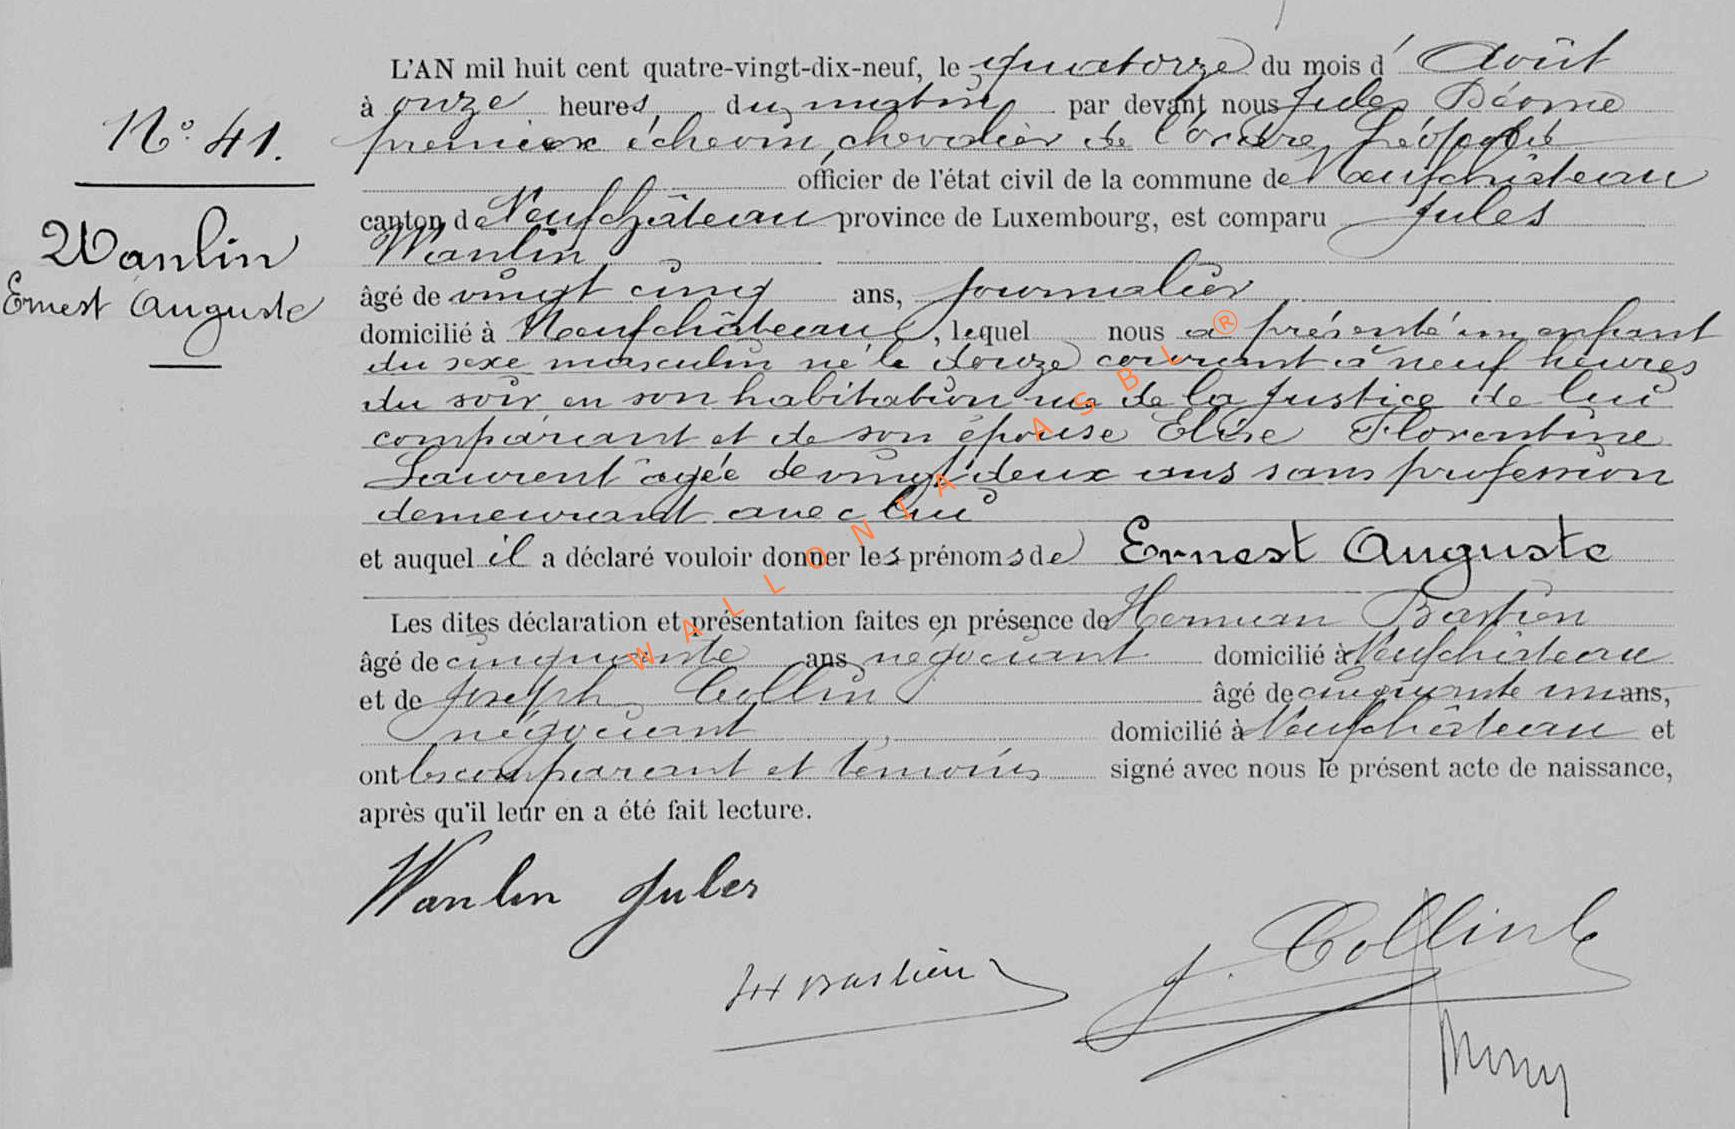 L'AN mil huit cent quatre-vingt-dix-neuf, le quatorze du mois d'Août
à onze heures du matin par devant nous Jules
premier échevin, chevalier de l'ordre Léopold
officier de l'état civil de la commune de Neufchâteau
canton de Neufchâteau province de Luxembourg, est comparu Jules
Wanlin
âgé de vingt cinq ans, journalier
domicilié à Neufchâteau, lequel nous a présenté un enfant
du sexe masculin né le douze courant à neuf heures
du soir en son habitation rue de la Justice de lui
comparant et de son épouse Elise Florentine
Laurent âgée de vingt deux ans sans profession
demeurant avec lui
et auquel il a déclaré vouloir donner les prénoms de Ernest Auguste
Les dites déclaration et présentation faites en présence de Herman Bastien
âgé de cinquante ans négociant domicilié à Neufchâteau
et de Joseph Collin âgé de cinquante un ans,
négociant domicilié à Neufchâteau et
ont les comparant et témoins signé avec nous le présent acte de naissance,
après qu'il leur en a été fait lecture.
N° 41.
Wanlin
Ernest Auguste
Wanlin Jules
Bastien
J. Collin
WALLONIA ASBL ®